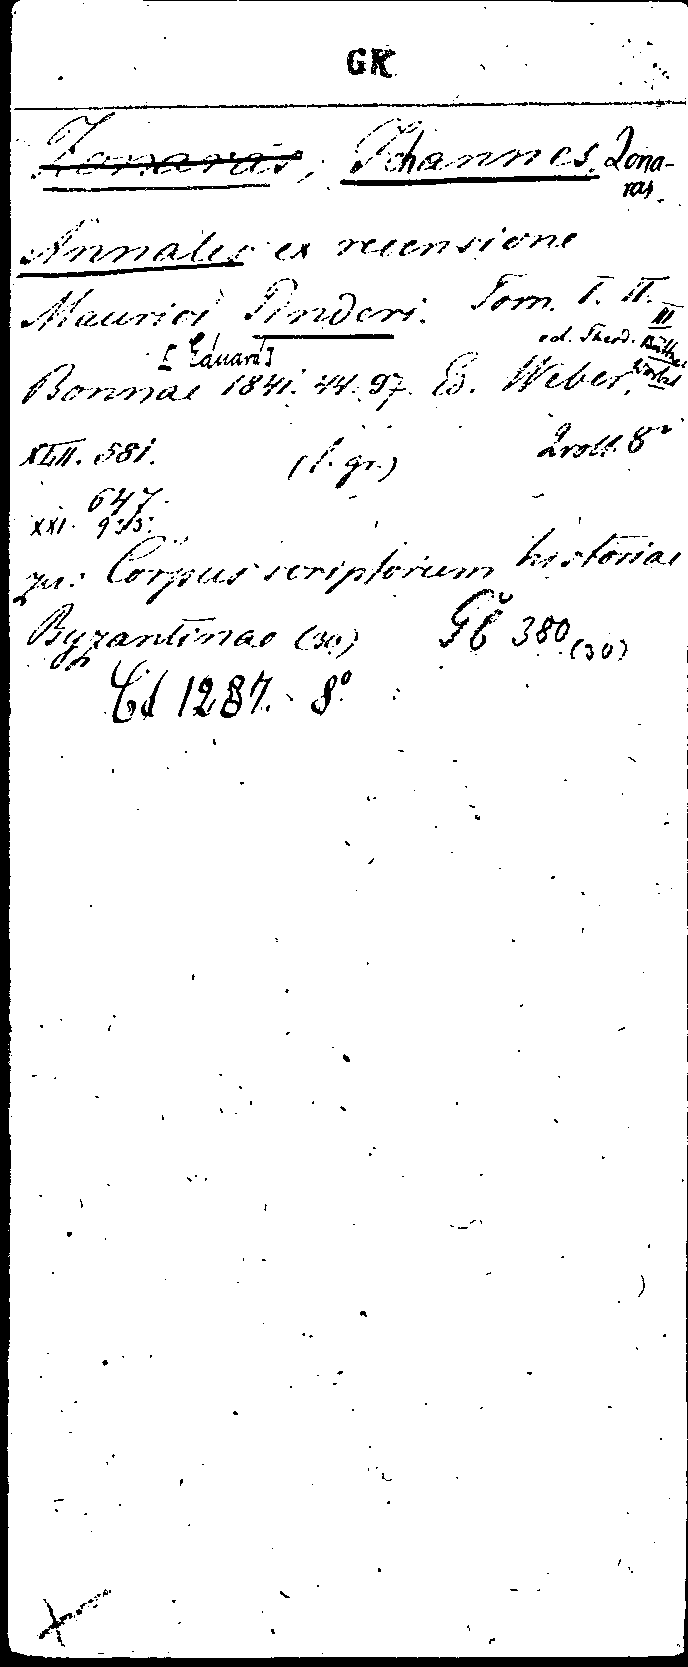 GK
Zonaras, Johannes Zona-
ras.
Annales ex recensione
Mauricii Pinderi. Tom. I. II.
III
[Eduard] ed. Theod. Büttner
Bonnae 1841. 44. 97. Ed. Weber. Wobst
XLII. 581. (l. gr.) 2 voll. 8°
647.
XXI. 933.
zu: Corpus scriptorum historiae
Byzantinae (30) Gb 380 (30)
Cd 1287. 8°